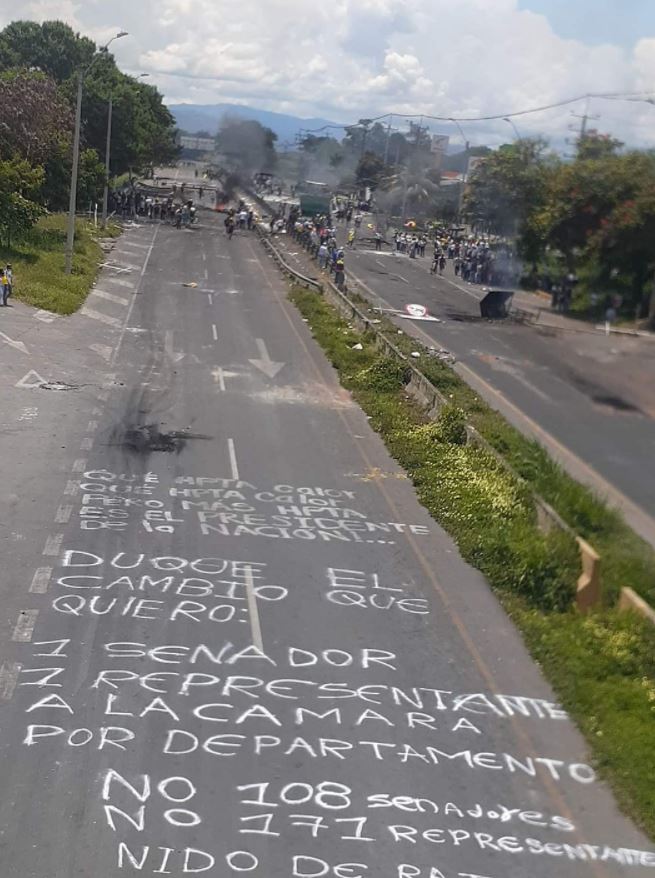 QUE HPTA CALOR
QUE HPTA CALOR
PERO MAS HPTA
ES EL PRESIDENTE
DE la NACION!...
DUQUE EL
CAMBIO QUE
QUIERO:
1 SENADOR
1 REPRESENTANTE
A LA CAMARA
POR DEPARTAMENTO
NO 108 senadores
NO 171 REPRESENTANTE
NIDO DE